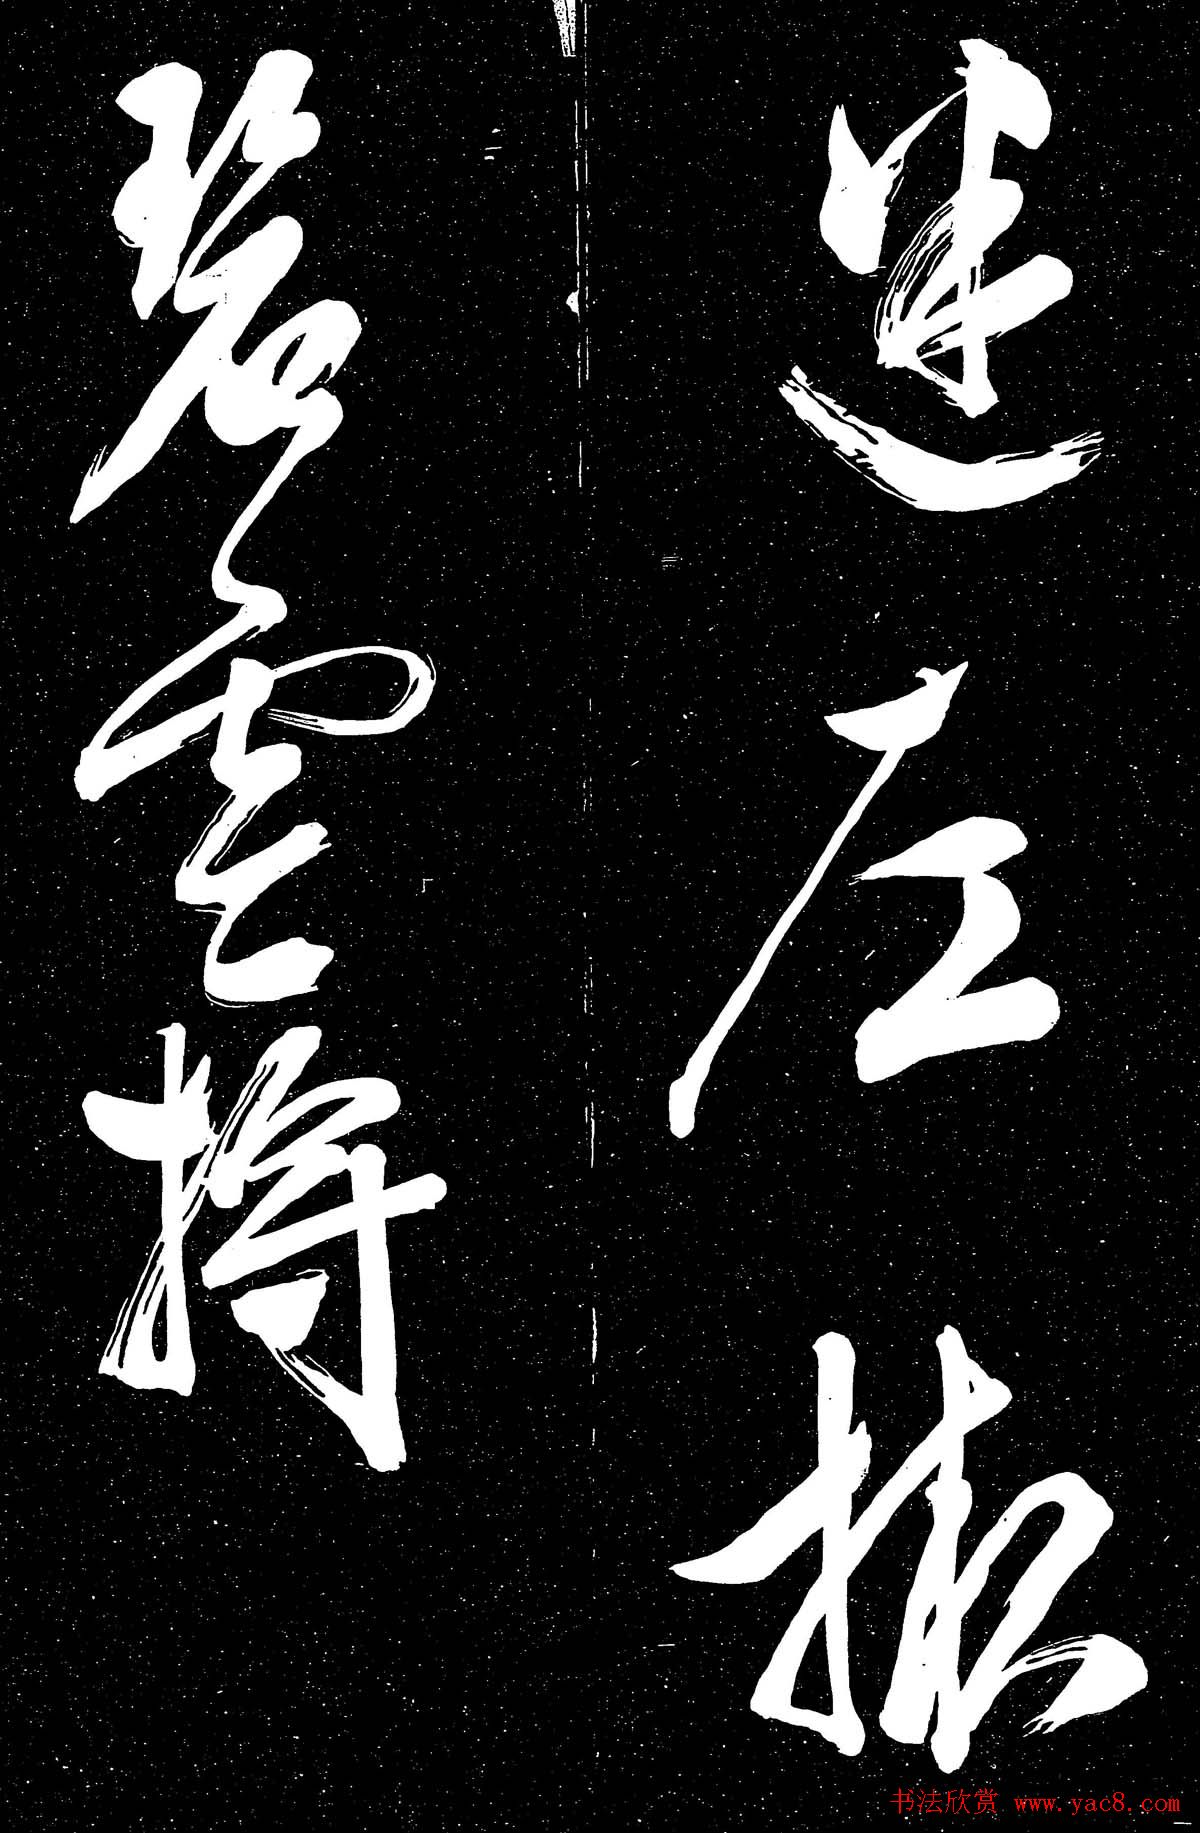 迷左披
碧雲將
书法欣赏 www.yac8.com